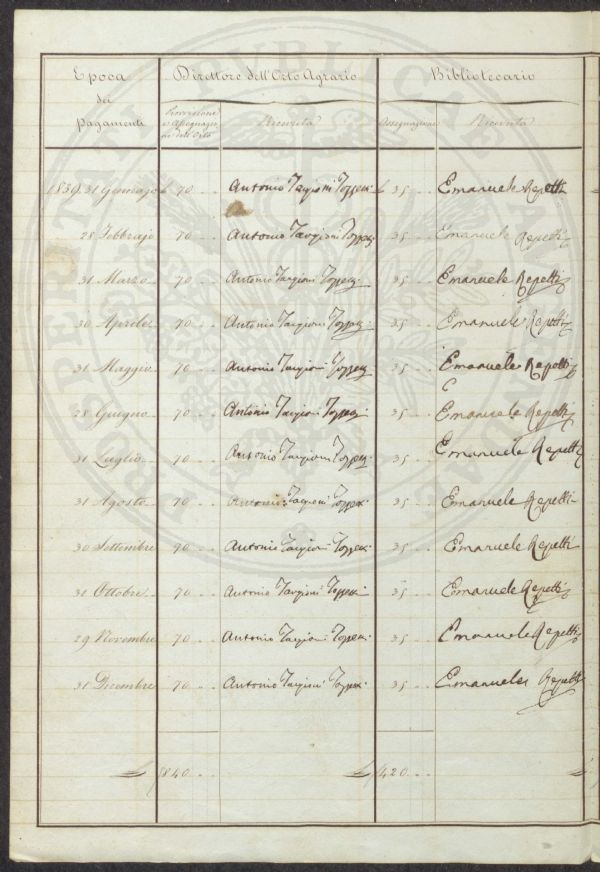 Epoca dei pagamenti | Direttore dell'Orto Agrario | Bibliotecario
Provvisione e Assegnazione dell'Orto | Ricevuta | Assegnazione | Ricevuta
1839. 31 Gennajo £ 70 .. Antonio Targioni Tozzetti £ 35 .. Emanuele Repetti
28 Febbrajo 70 .. Antonio Targioni Tozzetti 35 .. Emanuele Repetti
31 Marzo 70 .. Antonio Targioni Tozzetti 35 .. Emanuele Repetti
30 Aprile 70 .. Antonio Targioni Tozzetti 35 .. Emanuele Repetti
31 Maggio 70 .. Antonio Targioni Tozzetti 35 .. Emanuele Repetti
28 Giugno 70 .. Antonio Targioni Tozzetti 35 .. Emanuele Repetti
31 Luglio 70 .. Antonio Targioni Tozzetti 35 .. Emanuele Repetti
31 Agosto 70 .. Antonio Targioni Tozzetti 35 .. Emanuele Repetti
30 Settembre 70 .. Antonio Targioni Tozzetti 35 .. Emanuele Repetti
31 Ottobre 70 .. Antonio Targioni Tozzetti 35 .. Emanuele Repetti
29 Novembre 70 .. Antonio Targioni Tozzetti 35 .. Emanuele Repetti
31 Dicembre 70 .. Antonio Targioni Tozzetti 35 .. Emanuele Repetti
£ 840 .. £ 420 ..
PROSPERITATI PUBLICAE AUGENDAE